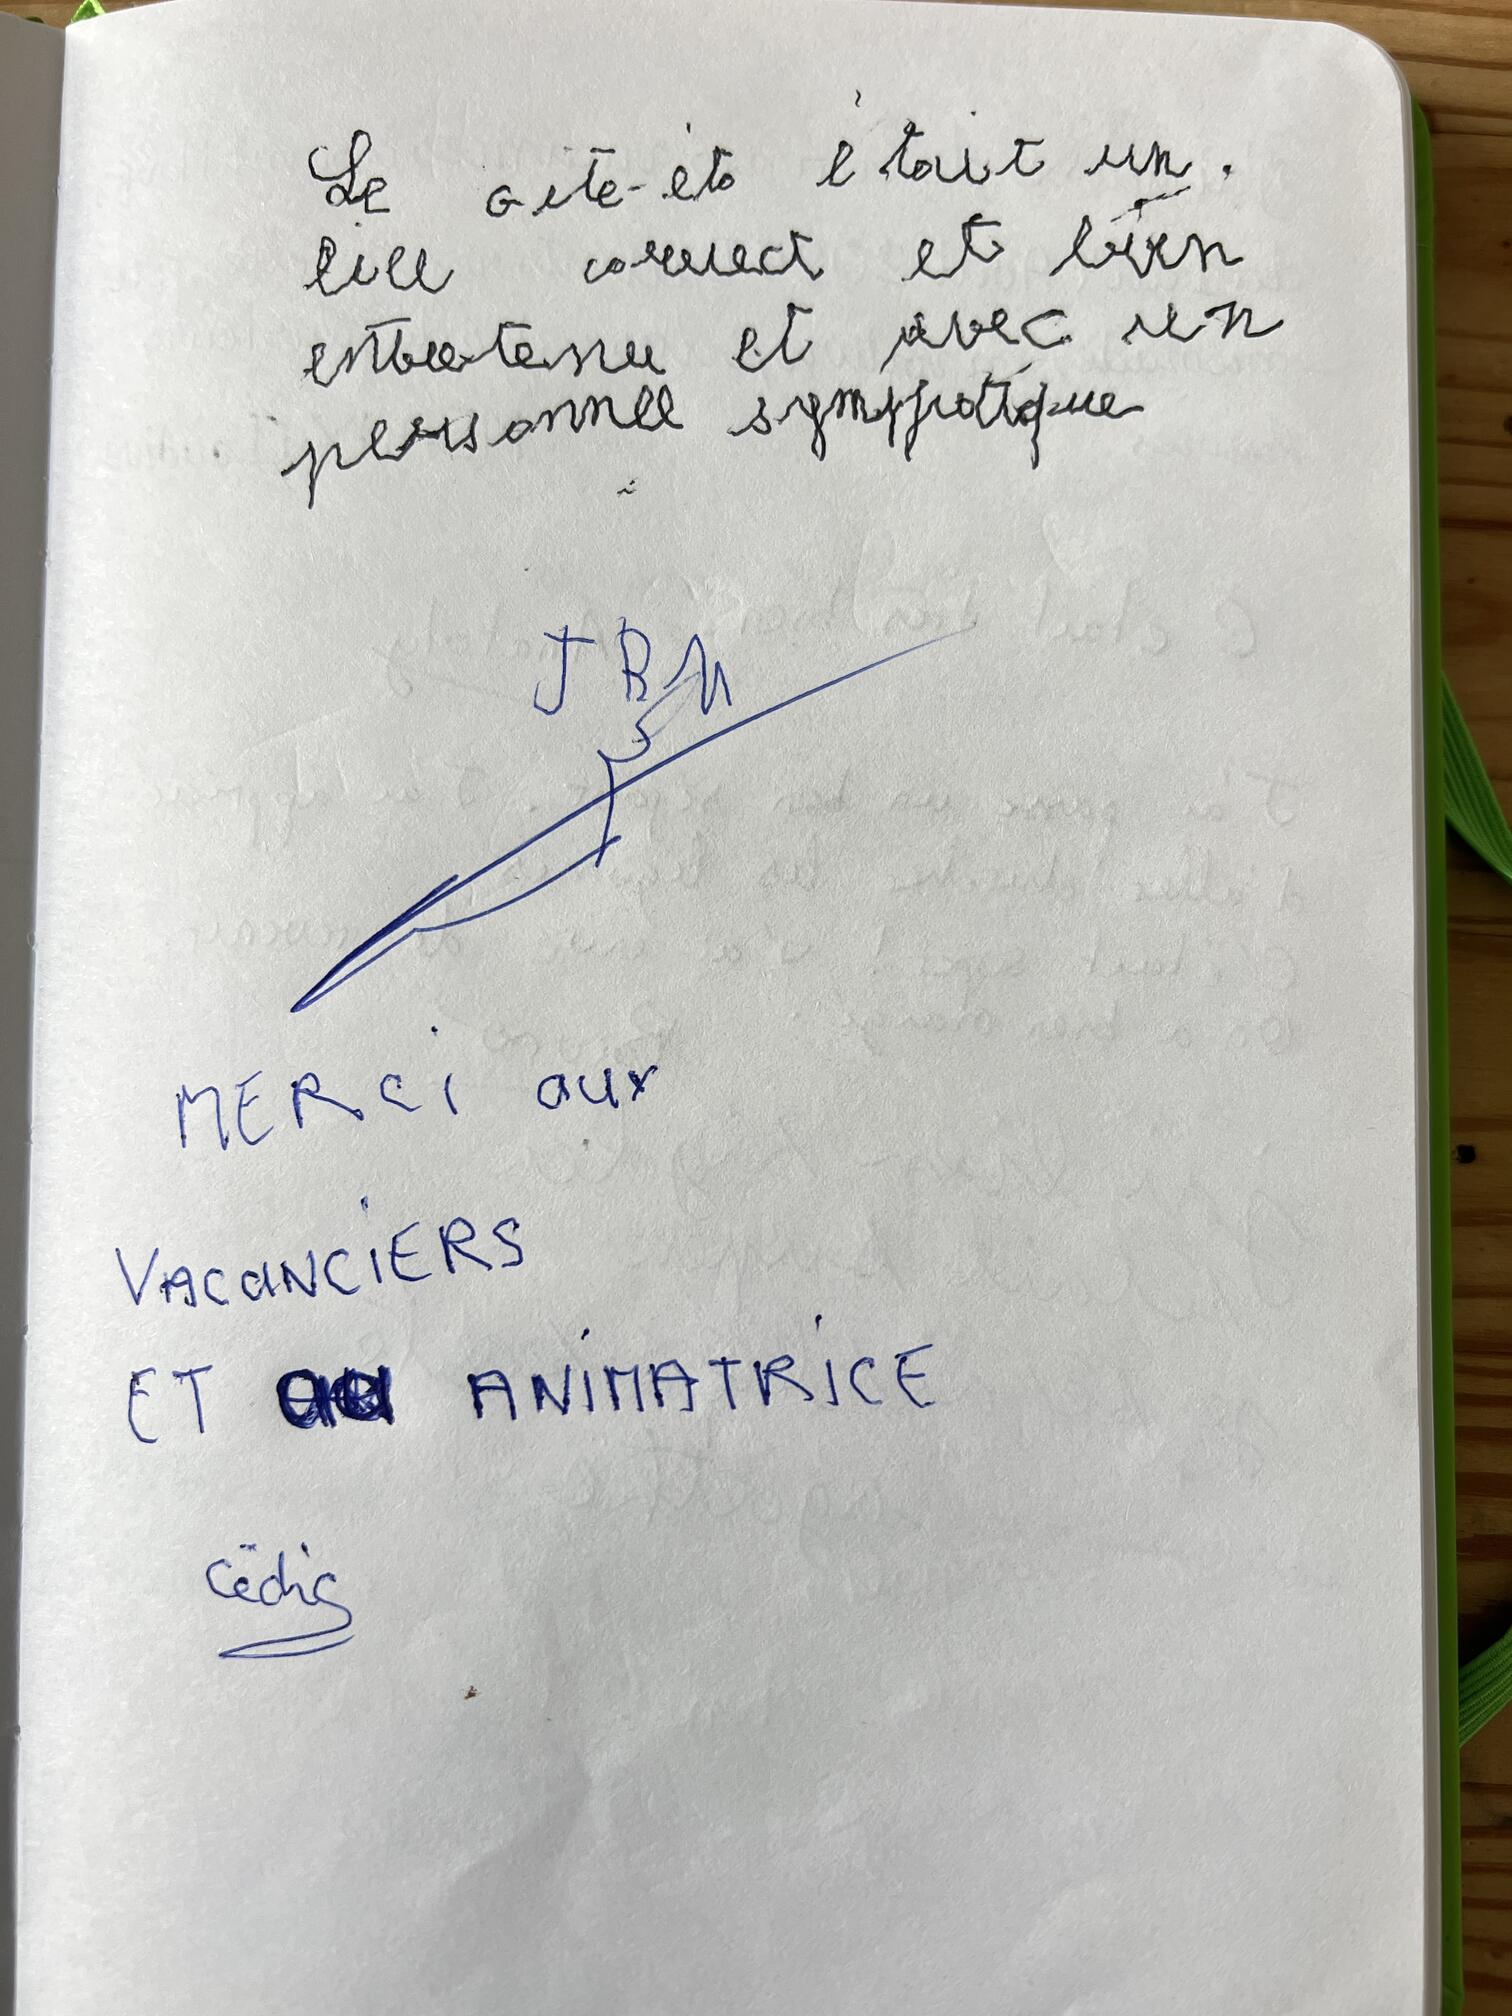 Le gite-eto était un.
lieu correct et bien
entretenu et avec un
personnel sympatique
JRM
MERCi aux
VACANCiERS
ET au ANiMATRiCE
Cédric